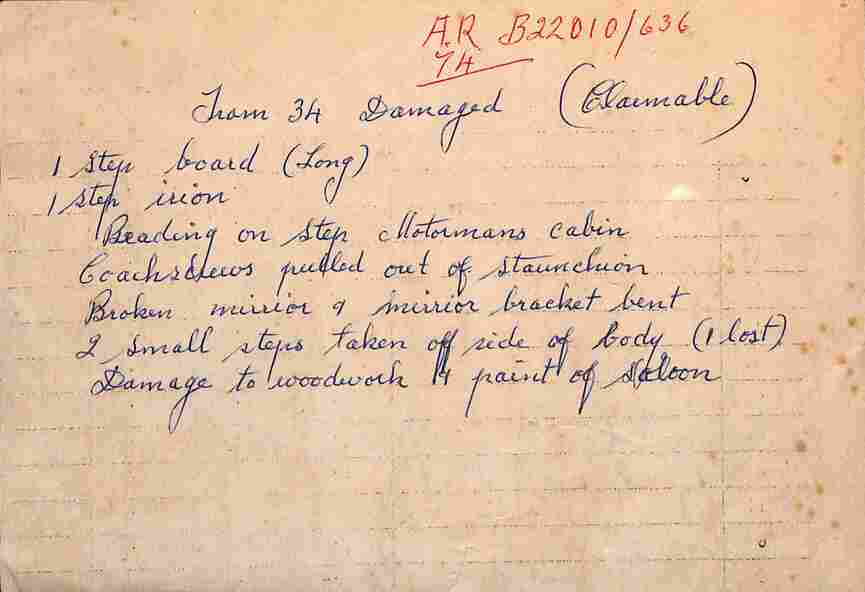 A.R B22010/636
74
Tram 34 Damaged (Claimable)
1 Step board (Long)
1 Step irion
Beading on Step Motormans cabin
Coachscrews pulled out of staunchion
Broken mirrior & mirrior bracket bent
2 Small steps taken off side of body (1 lost)
Damage to woodwork & paint of Saloon